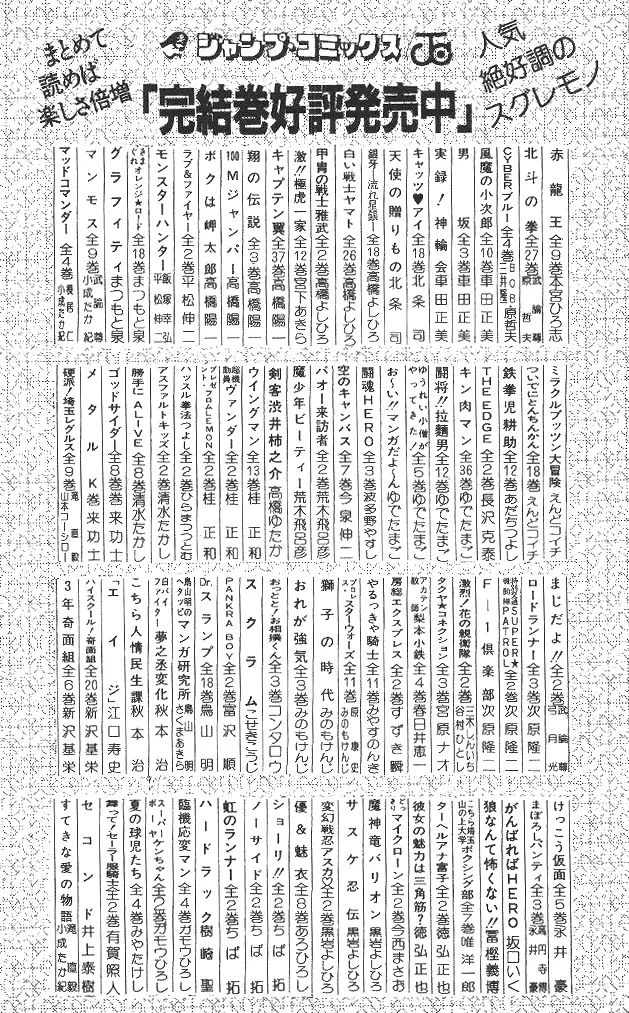 まとめて
読めば
楽しさ倍増
ジャンプ・コミックス
人気
絶好調の
スグレモノ
「完結巻好評発売中」
赤龍王 全9巻 本宮ひろ志
北斗の拳 全27巻 武論尊 原哲夫
CYBERブルー 全4巻 BOB 三井隆一 原哲夫
風魔の小次郎 全10巻 車田正美
男坂 全3巻 車田正美
実録!神輪会 車田正美
キャッツ♥アイ 全18巻 北条司
天使の贈りもの 北条司
銀牙―流れ星銀― 全18巻 高橋よしひろ
白い戦士ヤマト 全26巻 高橋よしひろ
甲冑の戦士雅武 全2巻 高橋よしひろ
激!!極虎一家 全12巻 宮下あきら
キャプテン翼 全37巻 高橋陽一
翔の伝説 全3巻 高橋陽一
100Mジャンパー 高橋陽一
ボクは岬太郎 高橋陽一
ラブ&ファイヤー 全2巻 平松伸二
モンスターハンター 飯塚幸弘 平松伸二
きまぐれオレンジ★ロード 全18巻 まつもと泉
グラフィティ まつもと泉
マンモス 全9巻 武論尊 小成たか紀
マッドコマンダー 全4巻 榎居仁 小成たか紀
ミラクルプッツン大冒険 えんどコイチ
ついでにとんちんかん 全18巻 えんどコイチ
鉄拳児耕助 全12巻 あだちつよし
THE EDGE 全2巻 長沢克泰
キン肉マン 全36巻 ゆでたまご
闘将!!拉麵男 全12巻 ゆでたまご
ゆうれい小僧がやってきた! 全5巻 ゆでたまご
お〜い!!マンガだよ〜ん ゆでたまご
闘魂HERO 全3巻 波多野やすし
空のキャンバス 全7巻 今泉伸二
バオー来訪者 全2巻 荒木飛呂彦
魔少年ビーティー 荒木飛呂彦
剣客渋井柿之介 高橋ゆたか
ウイングマン 全13巻 桂正和
超機動員ヴァンダー 全2巻 桂正和
プレゼント・フロムLEMON 全2巻 桂正和
ハッスル拳法つよし 全2巻 ひらまつつとむ
アスファルトキッズ 全2巻 清水たかし
勝手にALIVE 全8巻 清水たかし
ゴッドサイダー 全8巻 巻来功士
メタルK 巻来功士
硬派!埼玉レグルス 全9巻 滝直毅 山本コーシロー
まじだよ!! 全2巻 武論尊 弓月光
ロードランナー 全3巻 次原隆二
特別交通機動隊SUPER★PATROL 全2巻 次原隆二
F―1倶楽部 次原隆二
激烈!花の親衛隊 全2巻 三木しんいち 谷村ひとし
タクヤ★コネクション 全3巻 宮原ナオ
アカテン教師梨本小鉄 全4巻 春日井恵一
房総エクスプレス 全2巻 すずき瞬
やるっきゃ騎士 全11巻 みやすのんき
プロレス・スターウォーズ 全11巻 原康史 みのもけんじ
獅子の時代 みのもけんじ
おれが強気 全3巻 みのもけんじ
おっとと!お相撲くん 全3巻 コンタロウ
スクラム こせきこうじ
PANKRA BOY 全2巻 富沢順
Dr.スランプ 全18巻 鳥山明
鳥山明のヘタッピマンガ研究所 鳥山明 さくまあきら
白バイター夢之丞変化 秋本治
こちら人情民生課 秋本治
「エイジ」 江口寿史
ハイスクール!奇面組 全20巻 新沢基栄
3年奇面組 全6巻 新沢基栄
けっこう仮面 全5巻 永井豪
まぼろしパンティ 全3巻 高円寺博 永井豪
がんばればHERO 坂口いく
狼なんて怖くない!! 冨樫義博
こちら埼玉山の上大学ボクシング部 全7巻 唯洋一郎
ターヘルアナ富子 全2巻 徳弘正也
彼女の魅力は三角筋? 徳弘正也
どっきりマイクローン 全2巻 今西まさお
魔神竜バリオン 黒岩よしひろ
サスケ忍伝 黒岩よしひろ
変幻戦忍アスカ♡ 全2巻 黒岩よしひろ
優&魅衣 全8巻 あろひろし
ショーリ!! 全2巻 ちば拓
ノーサイド 全2巻 ちば拓
虹のランナー 全2巻 ちば拓
ハードラック 樹崎聖
臨機応変マン 全4巻 ガモウひろし
スーパーボーヤーケンちゃん ガモウひろし
夏の球児たち 全4巻 みやたけし
舞って!セーラー服騎士 全2巻 有賀照人
セコンド 井上泰樹
すてきな愛の物語 滝直毅 小成たか紀